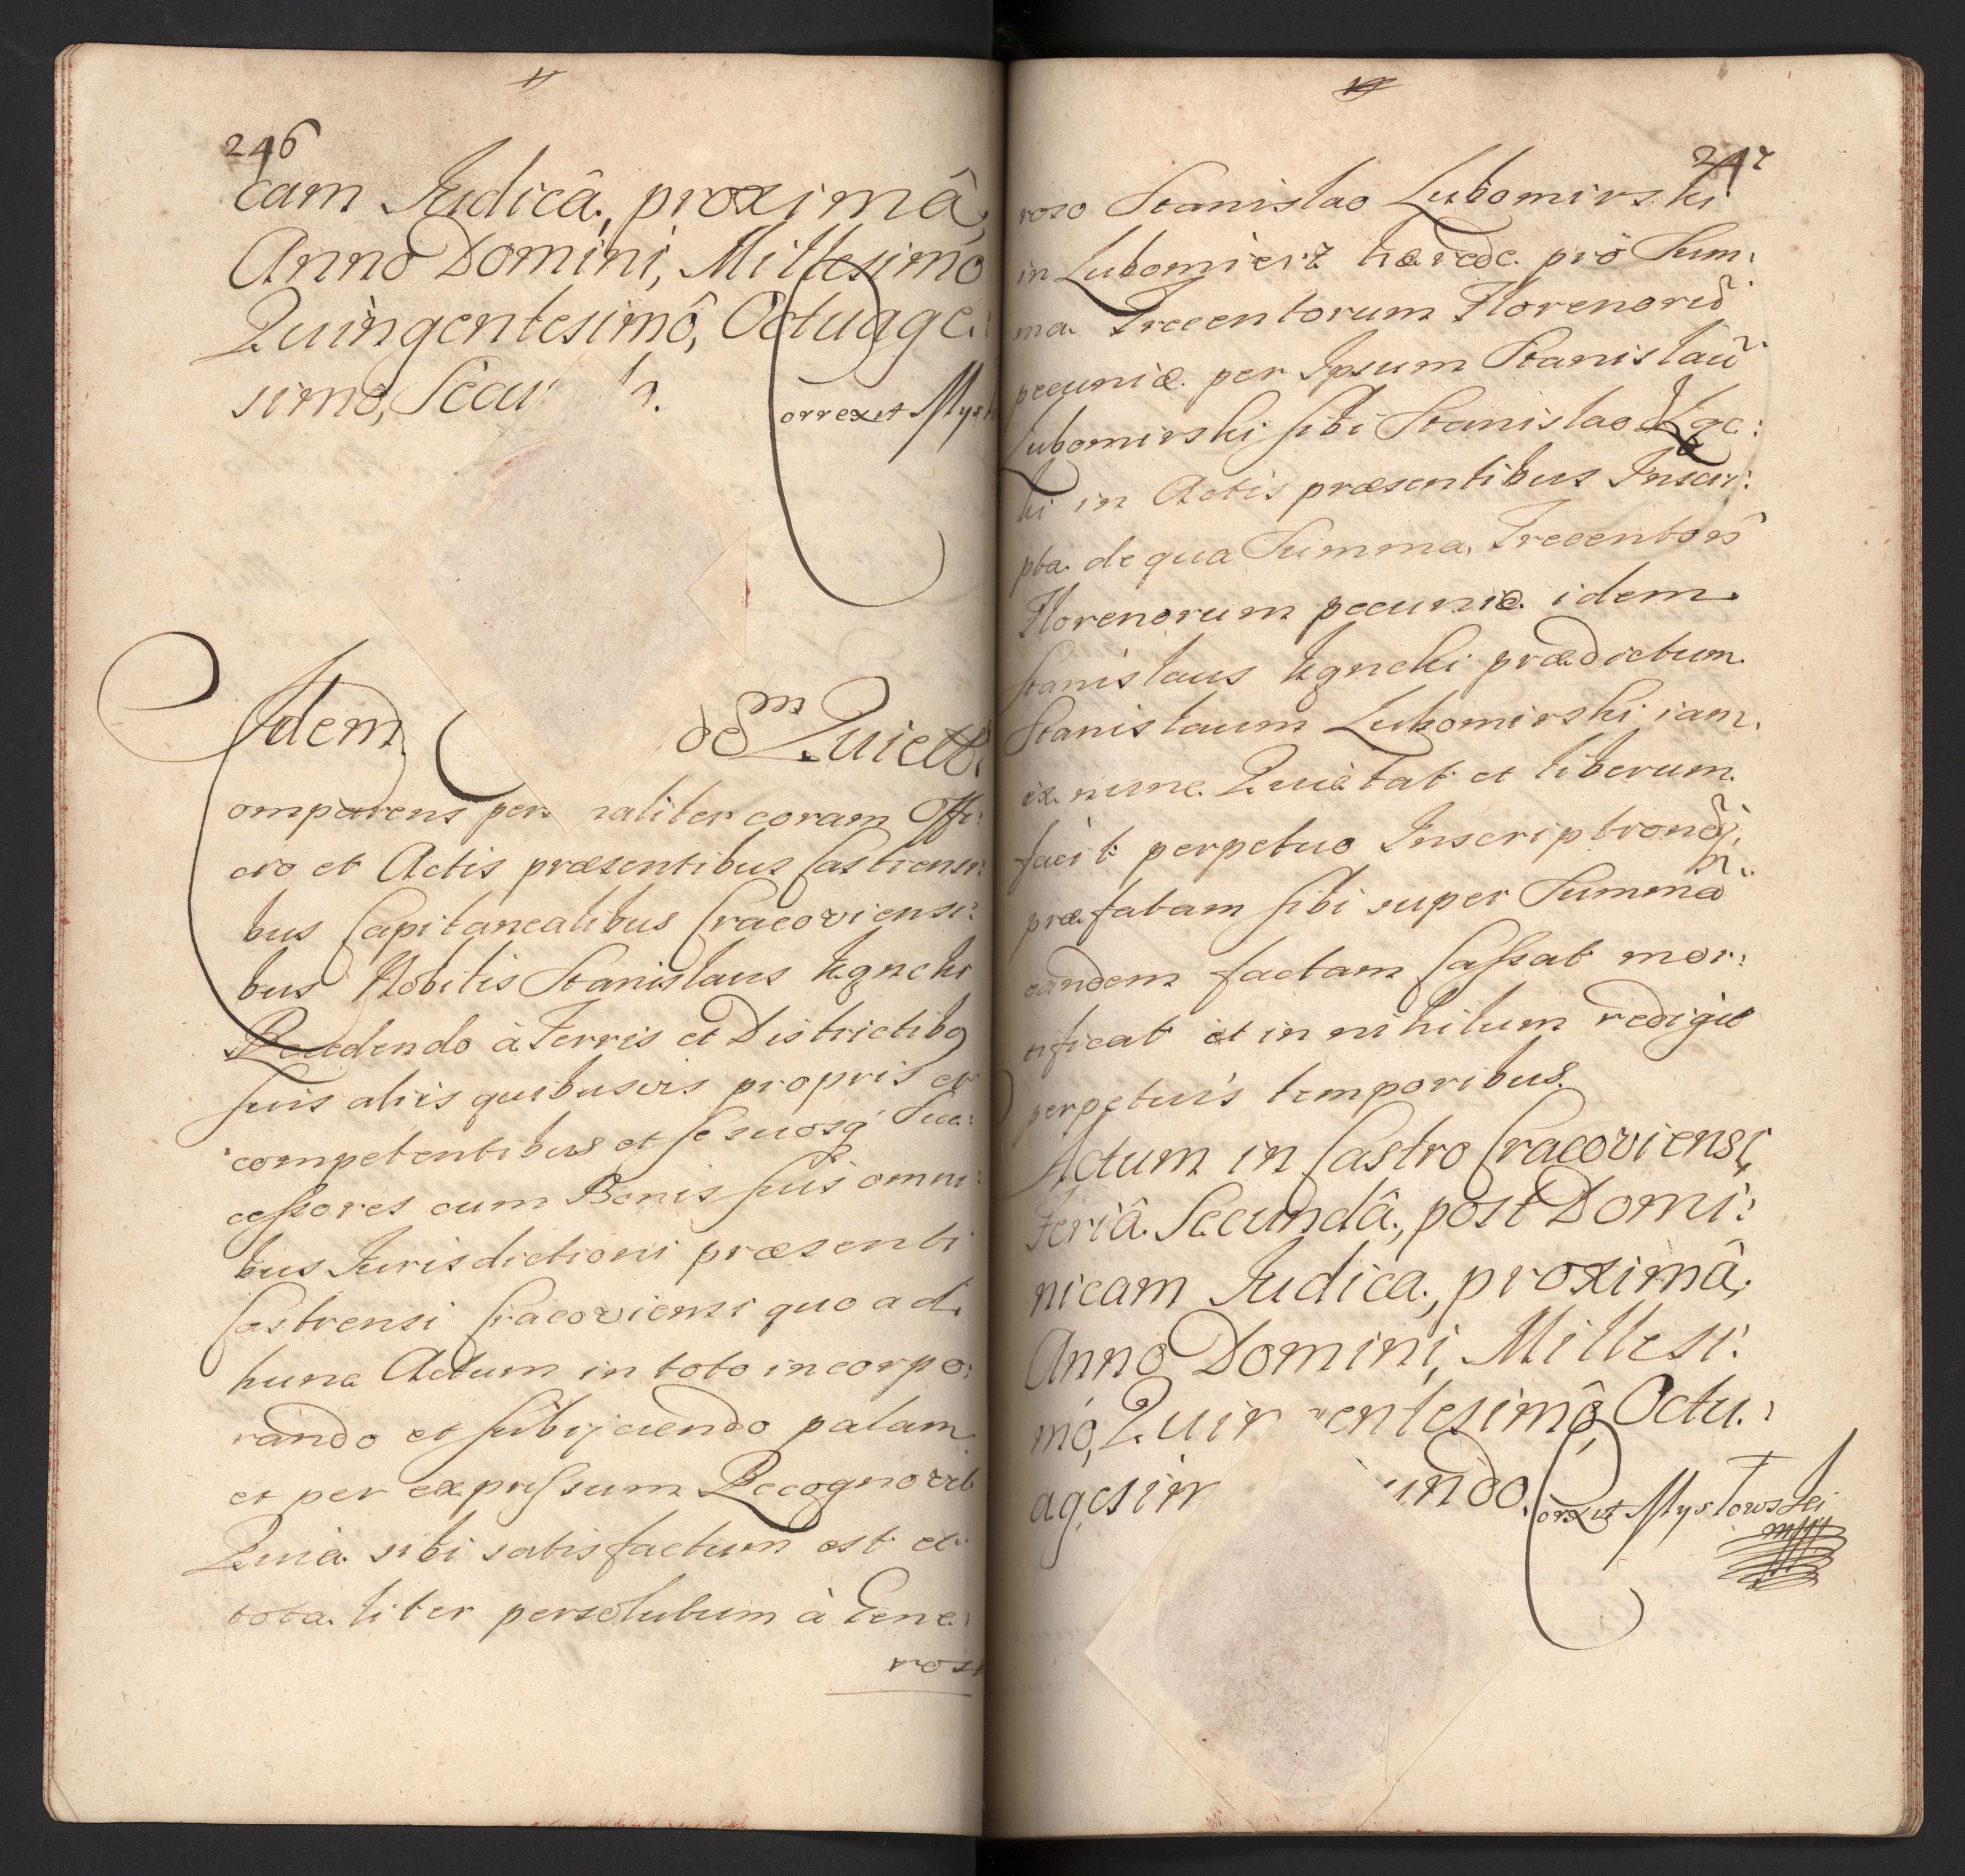 246
cam Judicâ, proximâ,
Anno Domini, Millesimo
Quingentesimô, Octuage:
simo, Secu
orrexit Mys
Idem
de Quiett:
omparens per naliter coram Offi:
cio et Actis præsentibus Castrensi:
bus Capitanealibus Cracoviensi:
bus Nobilis Stanislaus
Recedendo à Terris et Districtibq
suis aliis quibusvis propris et
competentibus et se suosq Suc:
cessores cum Bonis suis omni:
bus Jurisdictioni præsenti
Castrensi Cracoviensi quo ad
hunc Actum in toto incorpo:
rando et subijciendo palam
et per expressum Recognovit
Quia sibi satisfactum est et
totaliter persolutum à Gene:
roso
247
roso Stanislao Lubomirski
in Lubomierz hærede pro Sum:
ma Trecentorum Florenorũ
pecuniæ per Ipsum Stanislaũ
Lubomirski sibi Stanislao
ki in Actis præsentibus Inscri:
pta de qua Summa Trecentorũ
Florenorum pecuniæ idem
Stanislaus præedictum
Stanislaum Lubomirski iam
ex nunc Quiètat et liberum
facit perpetuo Inscriptionẽ
præfatam sibi super Summã
eandem factam Cassat mor:
tificat et in nihilum redigit
perpetuis temporibus.
Actum in Castro Cracoviensi,
Feriâ Secundâ, post Domi:
nicam Judica, proximâ,
Anno Domini, Millesi:
mó, Quin entesimô, Octu:
agesim undo.
orrexit Mysłowski
mpp